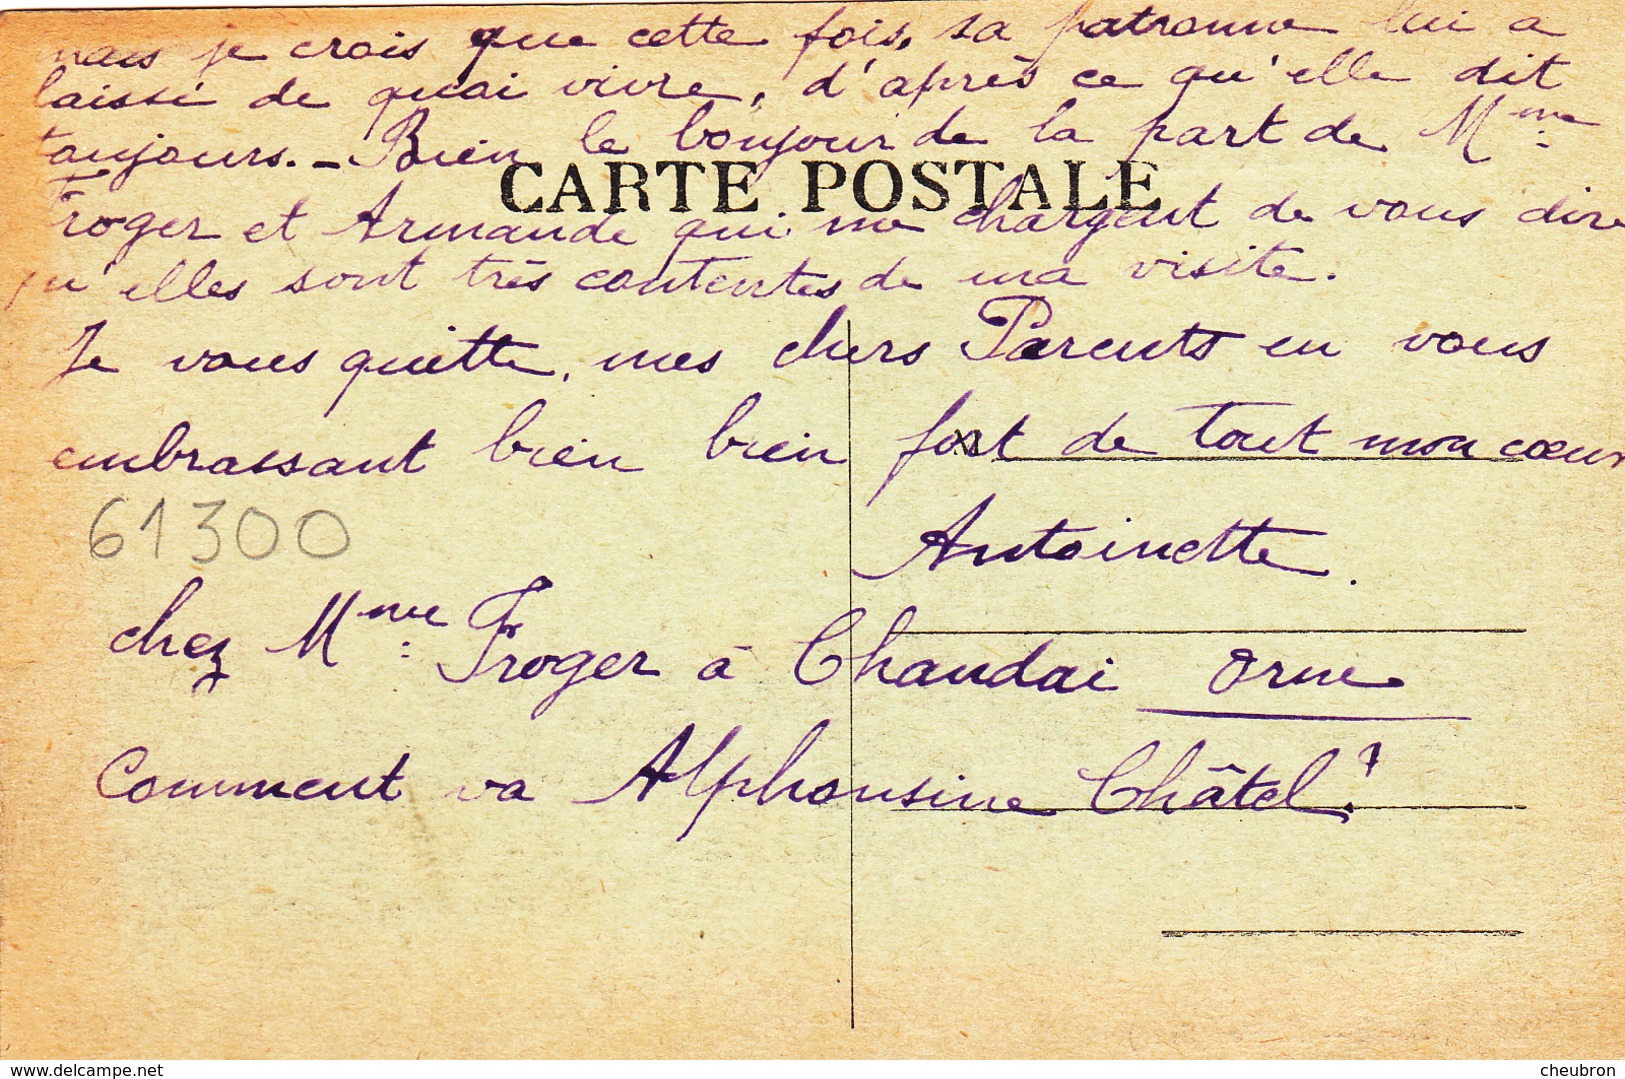 mais je crois que cette fois, sa patronne lui a
laissé de quoi vivre, d'après ce qu'elle dit
toujours. – Bien le bonjour de la part de Mme
CARTE POSTALE
Troger et Armande qui me chargent de vous dire
qu'elles sont très contentes de ma visite.
Je vous quitte, mes chers Parents en vous
embrassant bien bien fort de tout mon cœur
Antoinette.
61300
chez Mme Troger à Chandai Orne
Comment va Alphonsine Châtel?
delcampe.net
cheubron